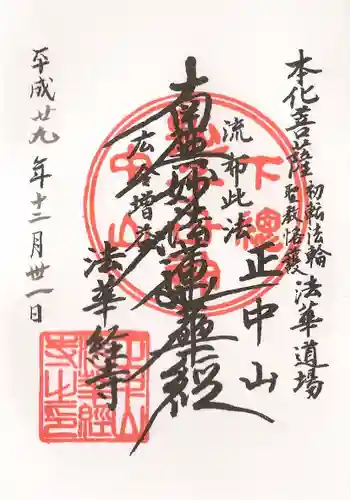 本化菩薩 初転法輪 聖教格護 法華道場
正中山
流布此法
南無妙法蓮華経
広令増益
法華経寺
平成廿九年十二月卅一日